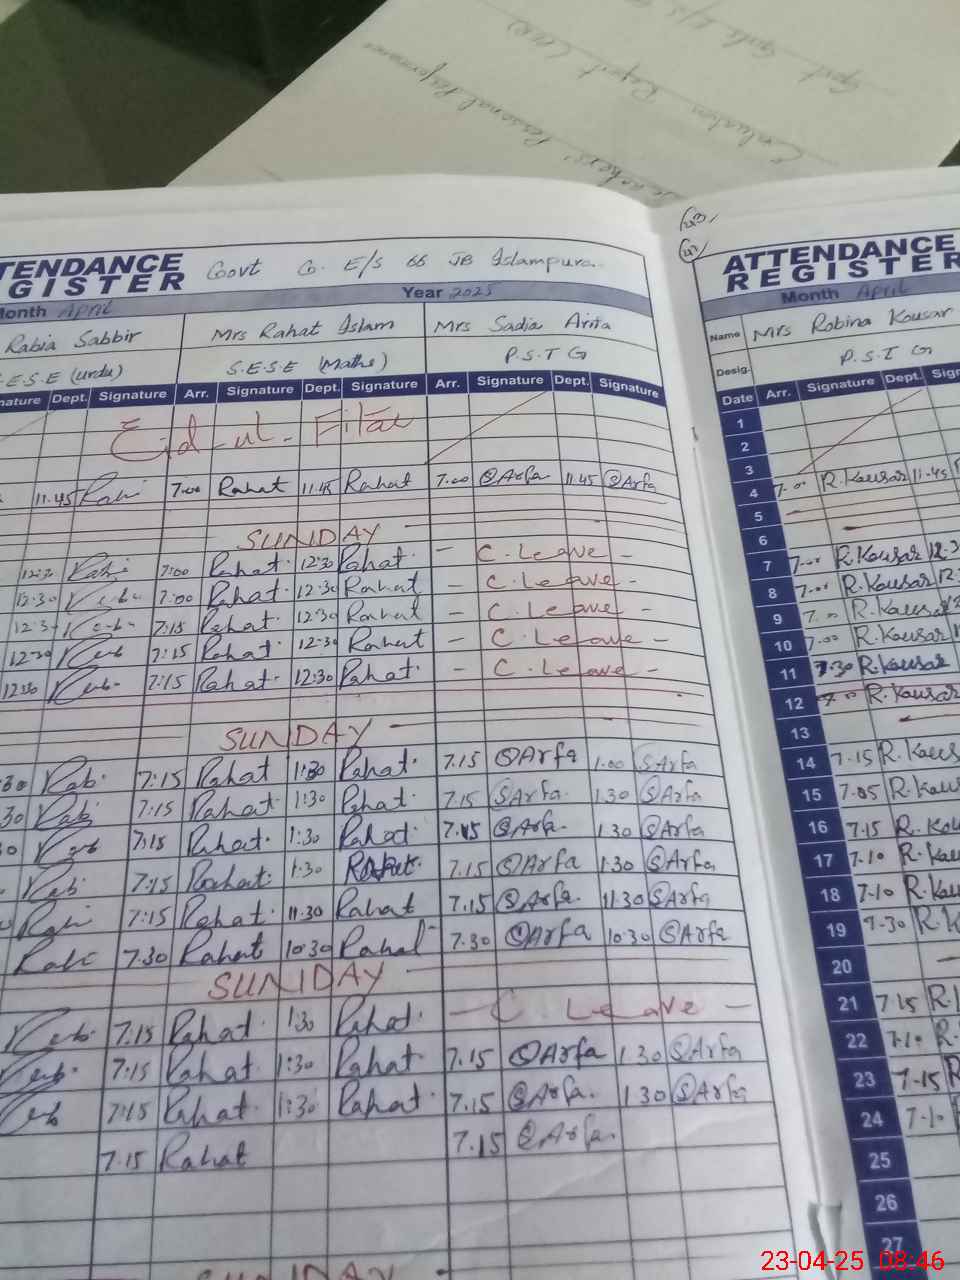 Teachers' Personal Performance
Evaluation Report (PER)
Govt Girls E/S
43,
42,
TENDANCE
GISTER
Govt G. E/S 66 JB Islampura.
Month April
Year 2025
Rabia Sabbir
Mrs Rahat Islam
Mrs Sadia Arita
E.S.E (urdu)
S.E.S.E (Maths)
P.S.T G
nature Dept. Signature Arr. Signature Dept. Signature Arr. Signature Dept. Signature
Eid-ul-Fitar
11.45 Rabi 7.00 Rahat 11.45 Rahat 7.00 SArfa 11.45 SArfa
SUNDAY
12:30 7:00 Rahat 12:30 Rahat - C.Leave -
12:30 7:00 Rahat 12:30 Rahat - C.Leave -
12:3 7:15 Rahat 12:30 Rahat - C.Leave -
12:30 7:15 Rahat 12:30 Rahat - C.Leave -
12:30 7:15 Rahat 12:30 Rahat - C.Leave -
SUNDAY
:30 Rab 7:15 Rahat 1:30 Rahat 7.15 SArfa 1.00 SArfa
30 Rab 7:15 Rahat 1:30 Rahat 7.15 SArfa 1.30 SArfa
0 7:15 Rahat 1:30 Rahat 7.15 SArfa 1.30 SArfa
Rab 7:15 Rahat 1:30 Rahat 7.15 SArfa 1:30 SArfa
Rabi 7:15 Rahat 11.30 Rahat 7.15 SArfa 11.30 SArfa
Rabi 7.30 Rahat 10:30 Rahat 7.30 SArfa 10.30 SArfa
SUNDAY
7:15 Rahat 1:30 Rahat - C Leave -
7:15 Rahat 1:30 Rahat 7.15 SArfa 1.30 SArfa
7:15 Rahat 1:30 Rahat 7.15 SArfa 1.30 SArfa
7.15 Rahat 7.15 SArfa
ATTENDANCE
REGISTER
Month April
Name Mrs Robina Kousar
Desig. P.S.T G
Date Arr. Signature Dept. Sign
1
2
3
4 7.00 R.Kousar 11.45
5
6
7 7.00 R.Kousar 12.3
8 7.00 R.Kousar 12.
9 7.00 R.Kousar
10 7.00 R.Kousar
11 7.30 R.Kousar
12 7.0 R.Kousar
13
14 7.15 R.Kous
15 7.05 R.Kou
16 7.15 R.Kou
17 7.10 R.Kau
18 7.10 R.Kau
19 7.30 R.K
20
21 7.15 R.
22 7.10 R.
23 7.15 R
24 7.10
25
26
27
23-04-25 08:46